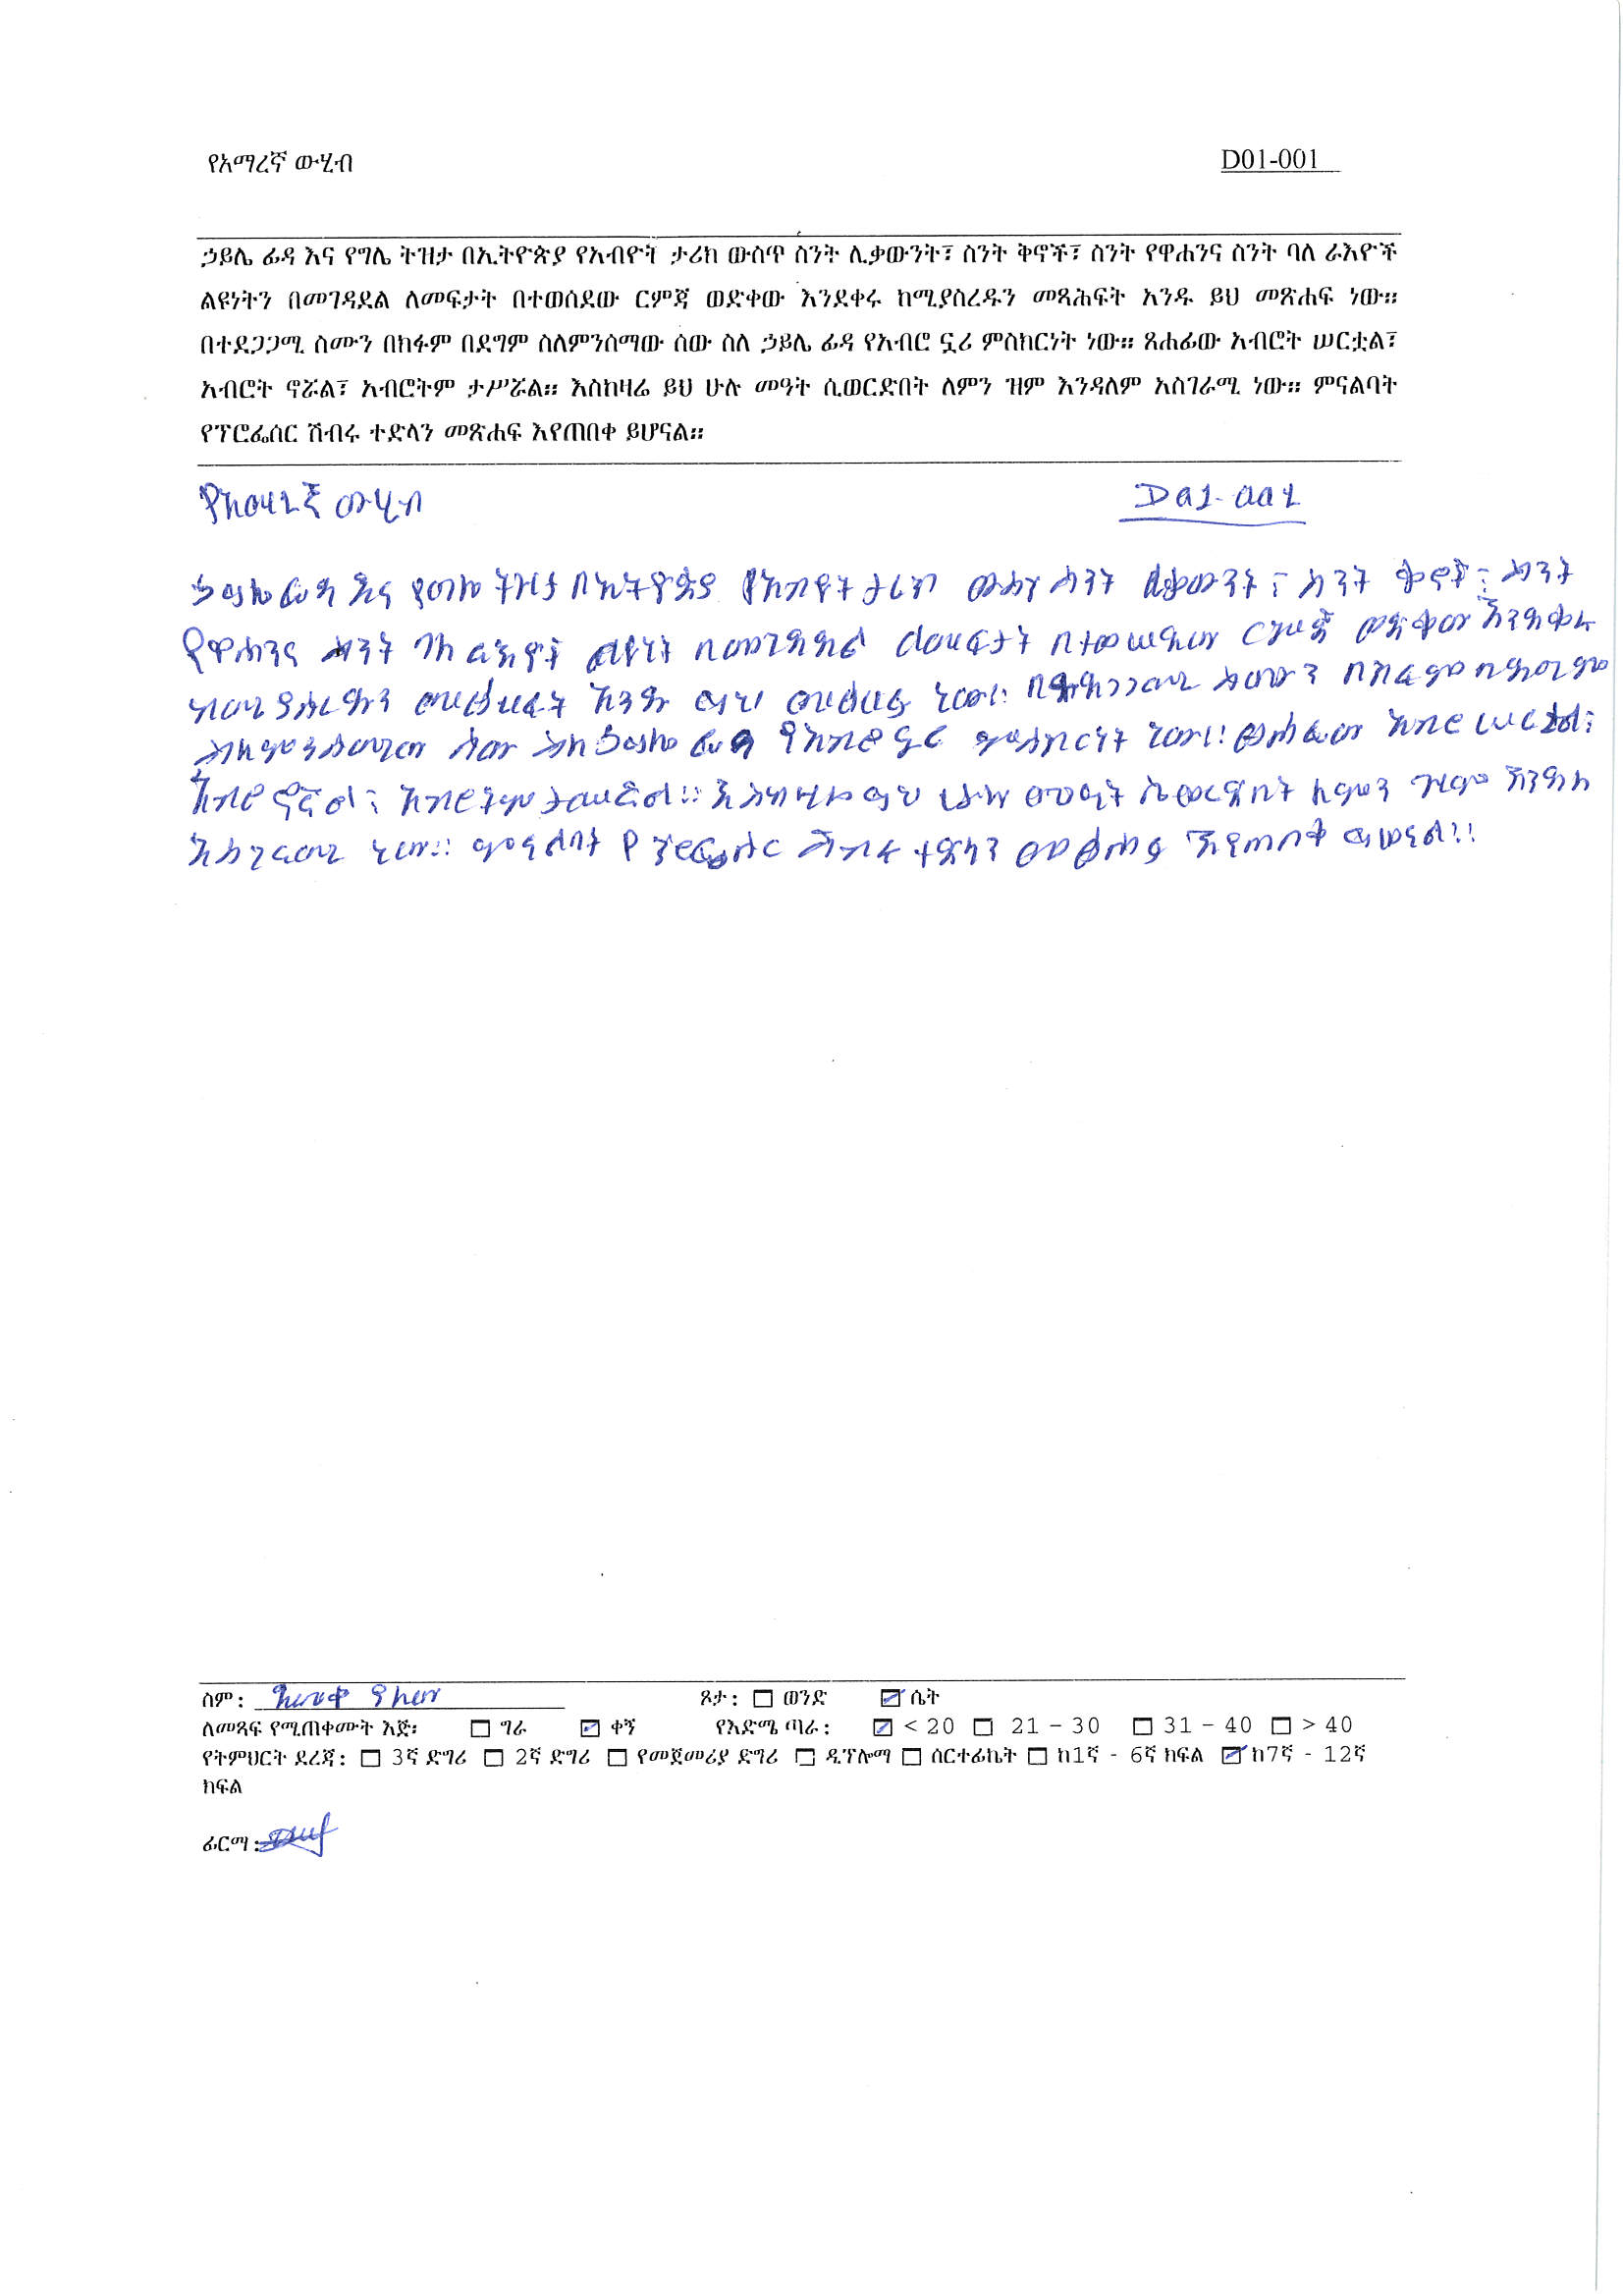 የአማረኛ ውሂብ D01-001
ኃይሌ ፊዳ እና የግሌ ትዝታ በኢትዮጵያ የአብዮት ታሪክ ውስጥ ስንት ሊቃውንት፣ ስንት ቅኖች፣ ስንት የዋሐንና ስንት ባለ ራእዮች
ልዩነትን በመገዳደል ለመፍታት በተወሰደው ርምጃ ወድቀው እንደቀሩ ከሚያስረዱን መጻሕፍት አንዱ ይህ መጽሐፍ ነው።
በተደጋጋሚ ስሙን በክፉም በደግም ስለምንሰማው ሰው ስለ ኃይሌ ፊዳ የአብሮ ኗሪ ምስክርነት ነው። ጸሐፊው አብሮት ሠርቷል፣
አብሮት ኖሯል፣ አብሮትም ታሥሯል። እስከዛሬ ይህ ሁሉ መዓት ሲወርድበት ለምን ዝም እንዳለም አስገራሚ ነው። ምናልባት
የፕሮፌሰር ሽብሩ ተድላን መጽሐፍ እየጠበቀ ይሆናል።
የአማረኛ ውሂብ D01-001
ኃይሌ ፊዳ እና የግሌ ትዝታ በኢትዮጵያ የአብዮት ታሪክ ውስጥ ስንት ሊቃውንት፣ ስንት ቅኖች፣ ስንት
የዋሐንና ስንት ባለ ራእዮች ልዩነት በመገዳደል ለመፍታት በተወሰደው ርምጃ ወድቀው እንደቀሩ
ከሚያስረዱን መጻሕፍት አንዱ ይህ መጽሐፍ ነው። በተደጋጋሚ ስሙን በክፉም በደግም
ስለምንሰማው ሰው ስለ ኃይሌ ፊዳ የአብሮ ኗሪ ምስክርነት ነው። ጸሐፊው አብሮ ሠርቷል፣
አብሮ ኖሯል፣ አብሮትም ታሥሯል። እስከዛሬ ይህ ሁሉ መዓት ሲወርድበት ለምን ዝም እንዳለ
አስገራሚ ነው። ምናልባት የፕሮፌሰር ሽብሩ ተድላን መጽሐፍ እየጠበቀ ይሆናል።
ስም: ጾታ: ወንድ ሴት
ለመጻፍ የሚጠቀሙት እጅ፡ ግራ ቀኝ የእድሜ ጣራ: < 20 21 – 30 31 – 40 > 40
የትምህርት ደረጃ: 3ኛ ድግሪ 2ኛ ድግሪ የመጀመሪያ ድግሪ ዲፕሎማ ሰርተፊኬት ከ1ኛ - 6ኛ ክፍል ከ7ኛ - 12ኛ
ክፍል
ፊርማ: